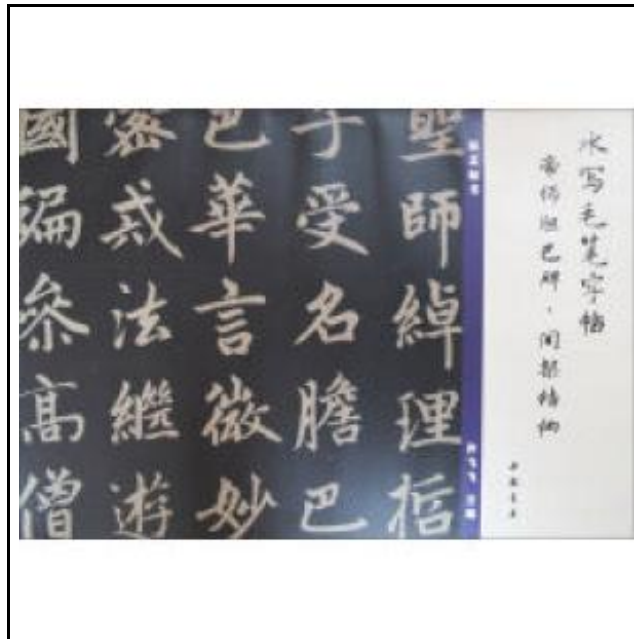 水写毛笔字帖
帝师胆巴碑·间架结构
中国书店
聖師綽理哲
子受名膽巴
巴華言微妙
密戒法繼遊
國徧參高僧